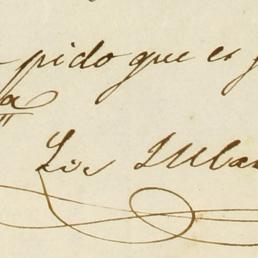 pido que es j
a
Los Ulba